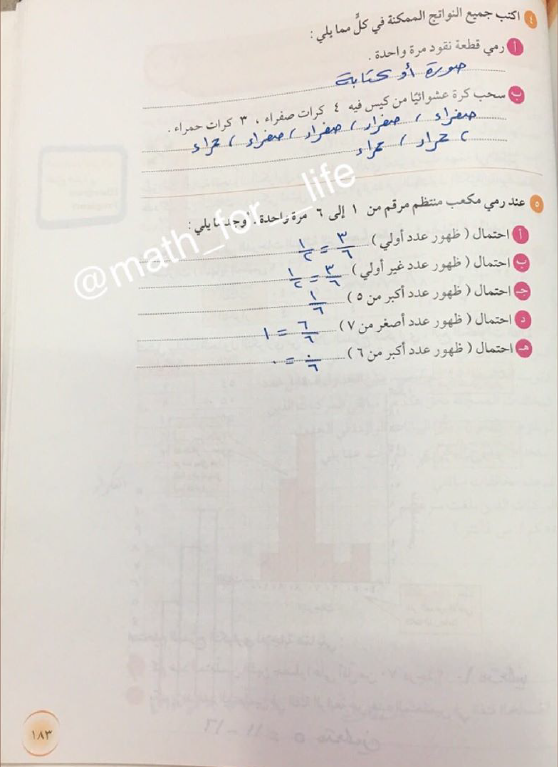 ٤ اكتب جميع النواتج الممكنة في كلٍّ مما يلي :
أ رمي قطعة نقود مرة واحدة .
صورة أو كتابة
ب سحب كرة عشوائيًا من كيس فيه ٤ كرات صفراء ، ٣ كرات حمراء .
صفراء ، صفراء ، صفراء ، صفراء ، حمراء
، حمراء ، حمراء
٥ عند رمي مكعب منتظم مرقم من ١ إلى ٦ مرة واحدة ، أوجد ما يلي :
أ احتمال ( ظهور عدد أولي ) ٣/٦ = ١/٢
ب احتمال ( ظهور عدد غير أولي ) ٣/٦ = ١/٢
جـ احتمال ( ظهور عدد أكبر من ٥ ) ١/٦
د احتمال ( ظهور عدد أصغر من ٧ ) ٦/٦ = ١
هـ احتمال ( ظهور عدد أكبر من ٦ ) ٠/٦ = ٠
@math_for__life
١٨٣